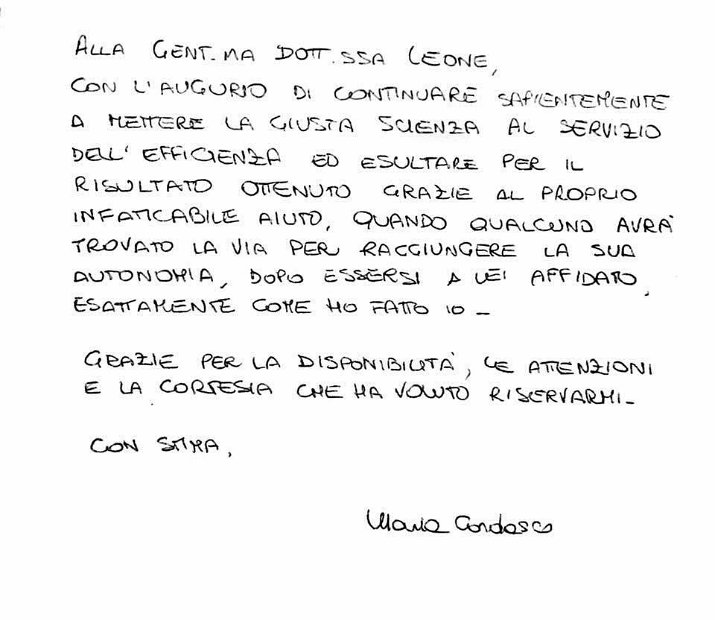 ALLA GENT.MA DOTT.SSA LEONE,
CON L'AUGURIO DI CONTINUARE SAPIENTEMENTE
A METTERE LA GIUSTA SCIENZA AL SERVIZIO
DELL'EFFICIENZA ED ESULTARE PER IL
RISULTATO OTTENUTO GRAZIE AL PROPRIO
INFATICABILE AIUTO, QUANDO QUALCUNO AVRÀ
TROVATO LA VIA PER RAGGIUNGERE LA SUA
AUTONOMIA, DOPO ESSERSI A LEI AFFIDATO,
ESATTAMENTE COME HO FATTO IO -
GRAZIE PER LA DISPONIBILITÀ, LE ATTENZIONI
E LA CORTESIA CHE HA VOLUTO RISERVARMI -
CON STIMA,
Maria